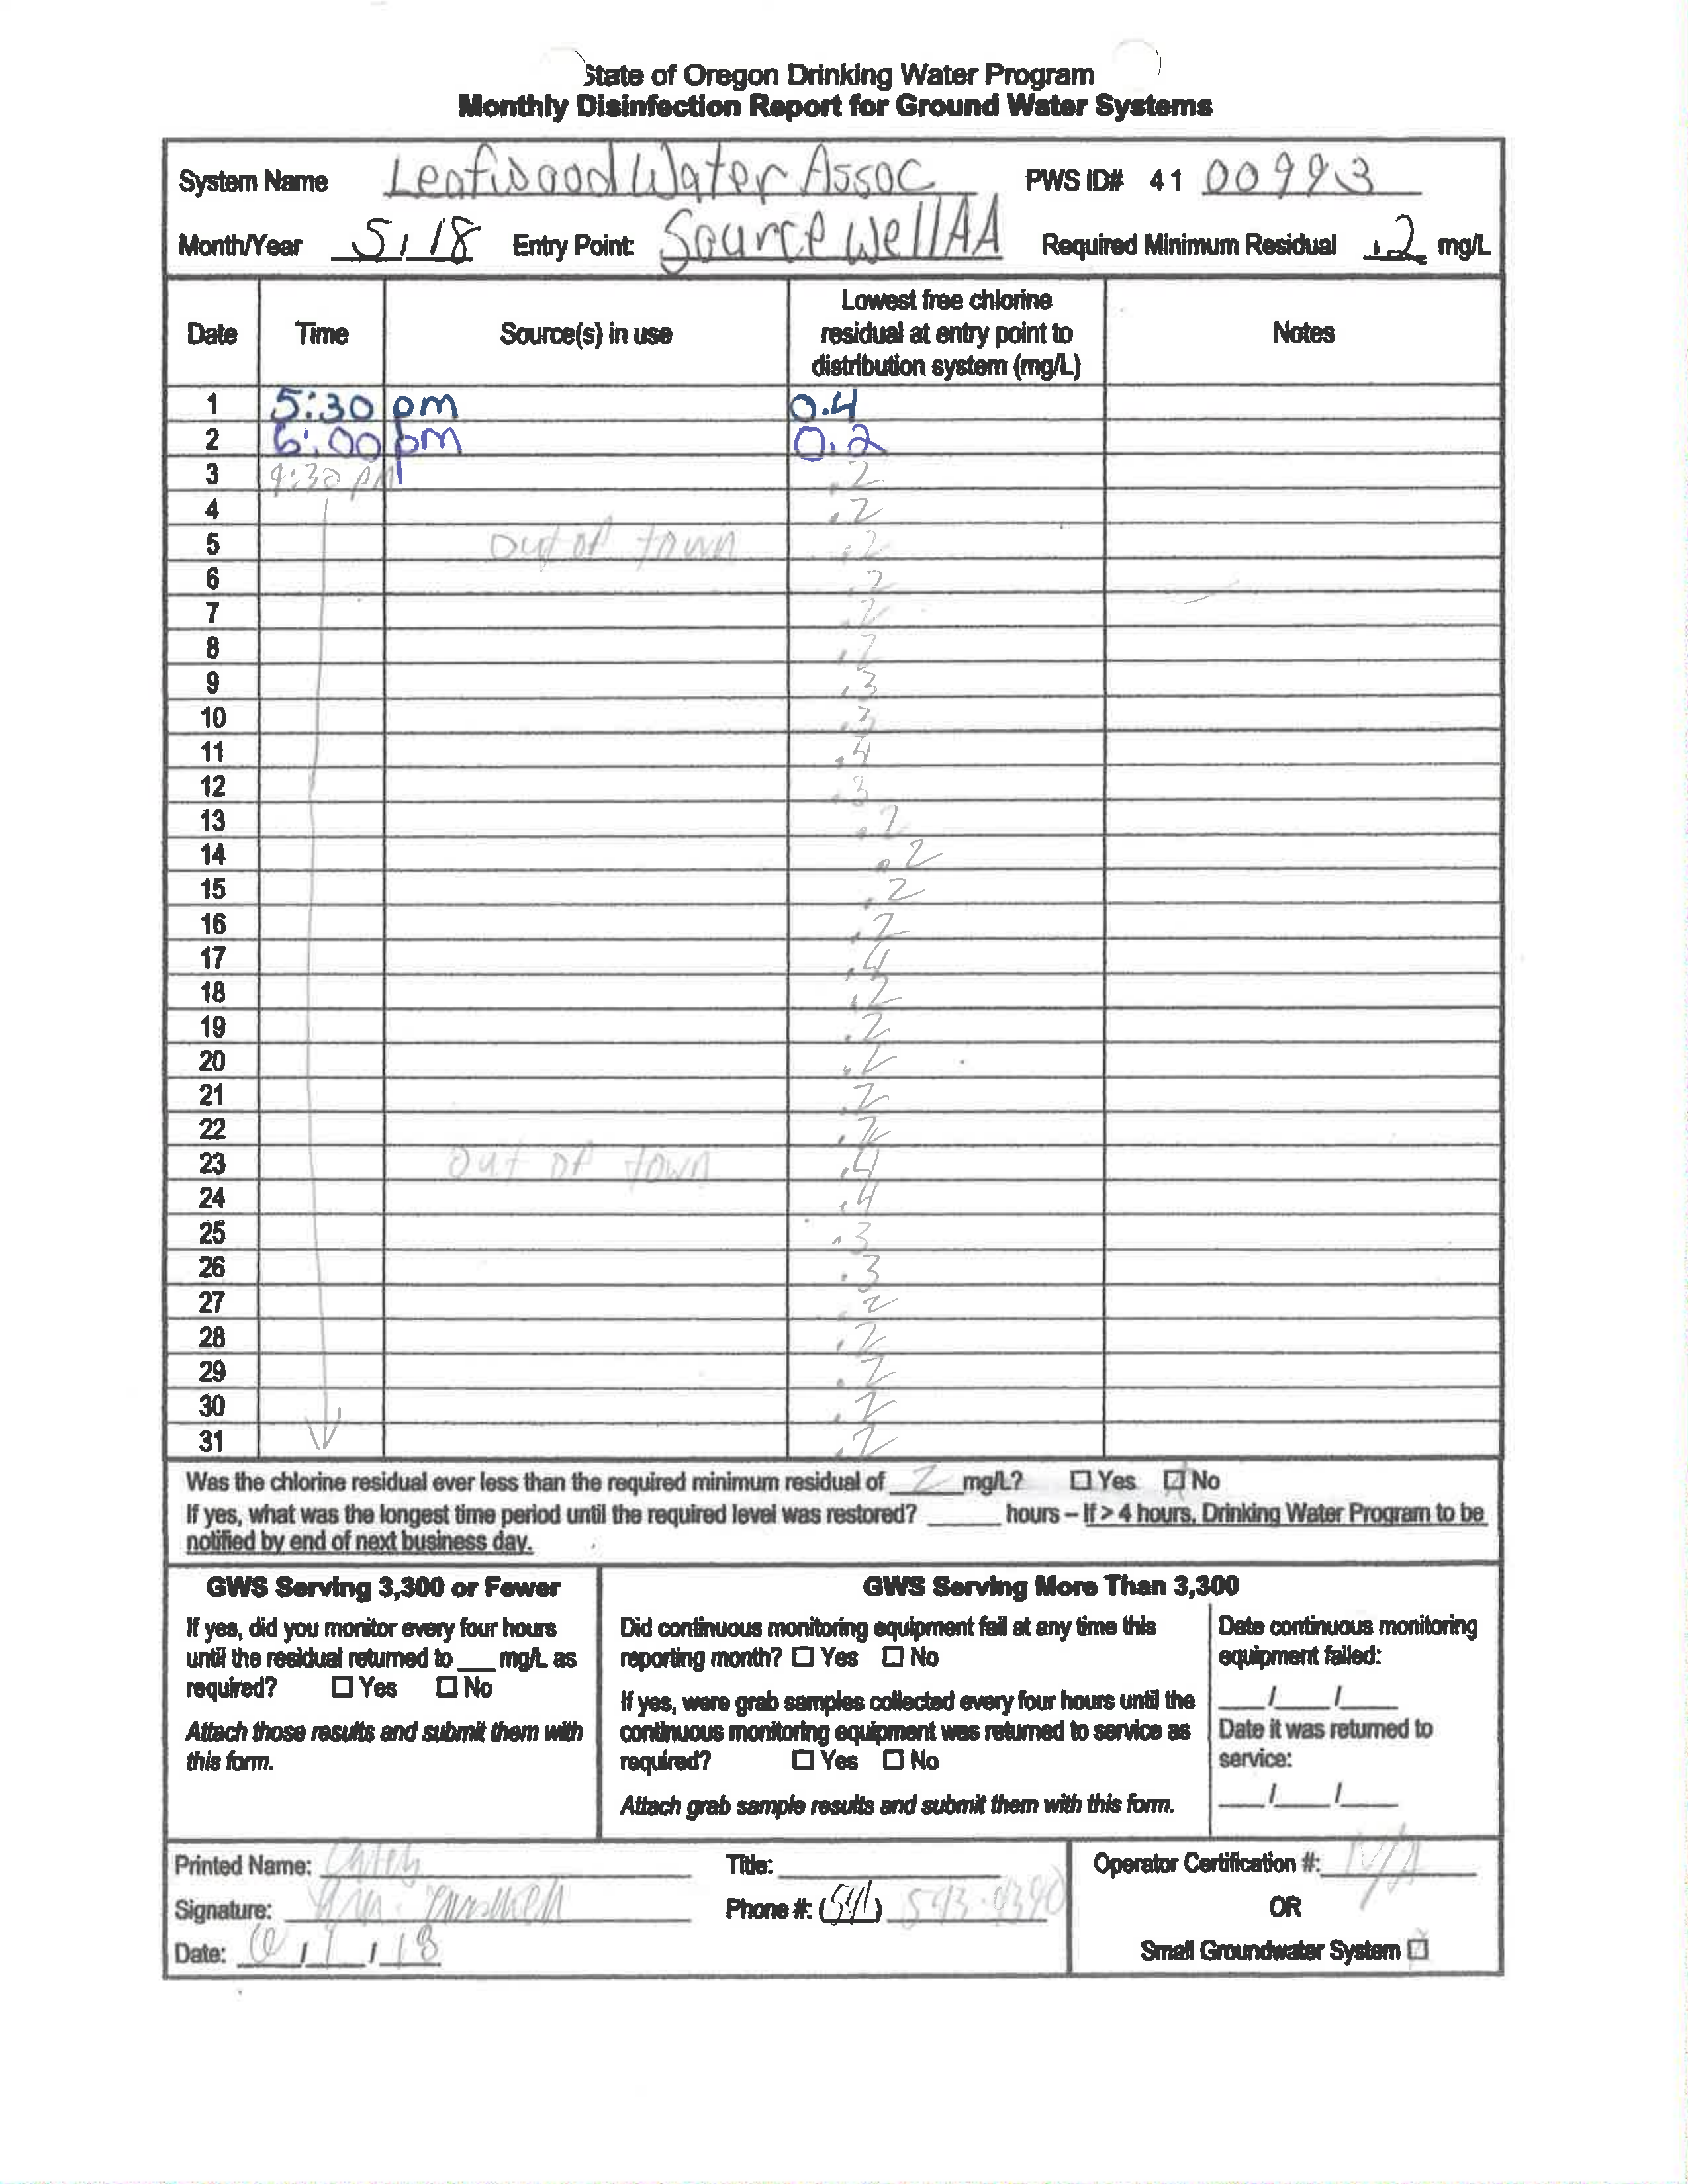 State of Oregon Drinking Water Program
Monthly Disinfection Report for Ground Water Systems
System Name Leafwood Water Assoc PWS ID# 41 00993
Month/Year 5/18 Entry Point: Source Well AA Required Minimum Residual .2 mg/L
Date Time Source(s) in use Lowest free chlorine residual at entry point to distribution system (mg/L) Notes
1 5:30 pm 0.4
2 6:00 pm 0.2
3 4:30 PM .2
4 .2
5 out of town .2
6 .2
7 .2
8 .2
9 .3
10 .3
11 .4
12 .3
13 .2
14 .2
15 .2
16 .2
17 .4
18 .2
19 .2
20 .2
21 .2
22 .2
23 out of town .4
24 .4
25 .3
26 .3
27 .2
28 .2
29 .2
30 .2
31 .2
Was the chlorine residual ever less than the required minimum residual of 2 mg/L? Yes No
If yes, what was the longest time period until the required level was restored? ____ hours – If > 4 hours, Drinking Water Program to be
notified by end of next business day.
GWS Serving 3,300 or Fewer
If yes, did you monitor every four hours
until the residual returned to ___ mg/L as
required? Yes No
Attach those results and submit them with
this form.
GWS Serving More Than 3,300
Did continuous monitoring equipment fail at any time this
reporting month? Yes No
If yes, were grab samples collected every four hours until the
continuous monitoring equipment was returned to service as
required? Yes No
Attach grab sample results and submit them with this form.
Date continuous monitoring
equipment failed:
___/___/___
Date it was returned to
service:
___/___/___
Printed Name: Title: Operator Certification #: N/A
Signature: Phone #: (541) 593-4390 OR
Date: 6/1/18 Small Groundwater System